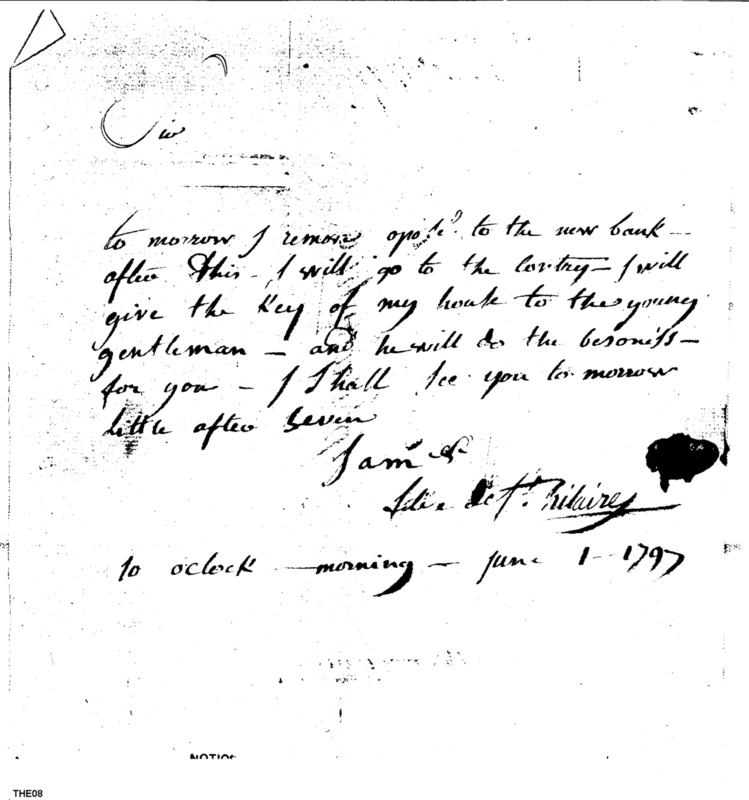 Sir
to morrow I remove opo to the new bank —
after this — I will go to the contry — I will
give the Key of my house to the young
gentleman — and he will do the besoniss —
for you — I Shall See you to morrow
little after Seven
I am &
de St. hilaire
10 oclock — morning — June 1 — 1797
NOTICE
THE08